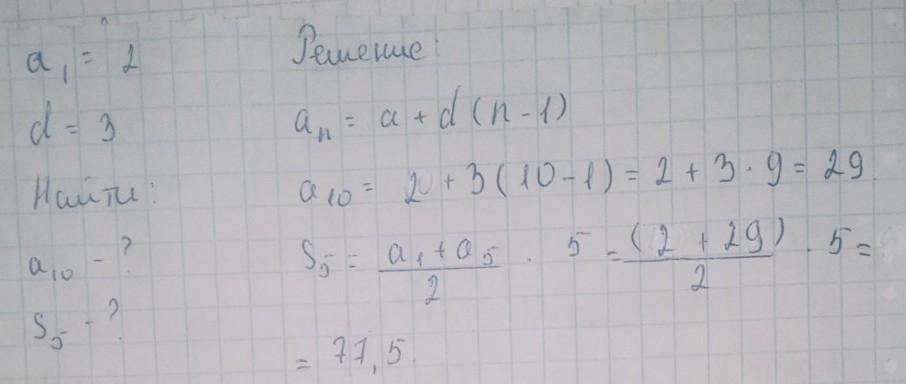 a₁ = 2
d = 3
Найти:
a₁₀ - ?
S₅ - ?
Решение:
aₙ = a + d (n - 1)
a₁₀ = 2 + 3 (10 - 1) = 2 + 3 · 9 = 29
S₅ = (a₁ + a₅)/2 · 5 = (2 + 29)/2 · 5 =
= 77,5